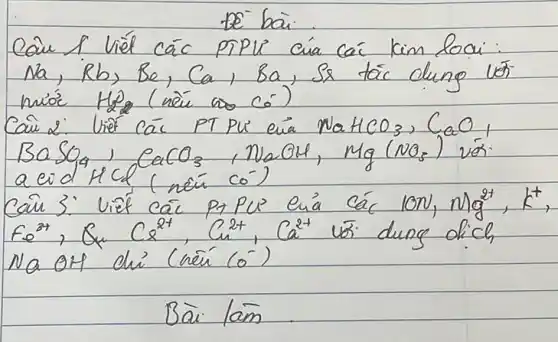 Đề bài.
Câu 1 Viết các PTPƯ của các kim loại:
Na, Rb, Be, Ca, Ba, Sr tác dụng với
nước H2O (nếu có)
Câu 2: Viết các PT PƯ của NaHCO3, CaO,
BaSO4, CaCO3, NaOH, Mg(NO3) với
acid HCl (nếu có)
Câu 3: Viết các PTPƯ của các ION, Mg2+, K+,
Fe2+, Cr2+, Cu2+, Ca2+ với dung dịch
NaOH dư (nếu có)
Bài làm